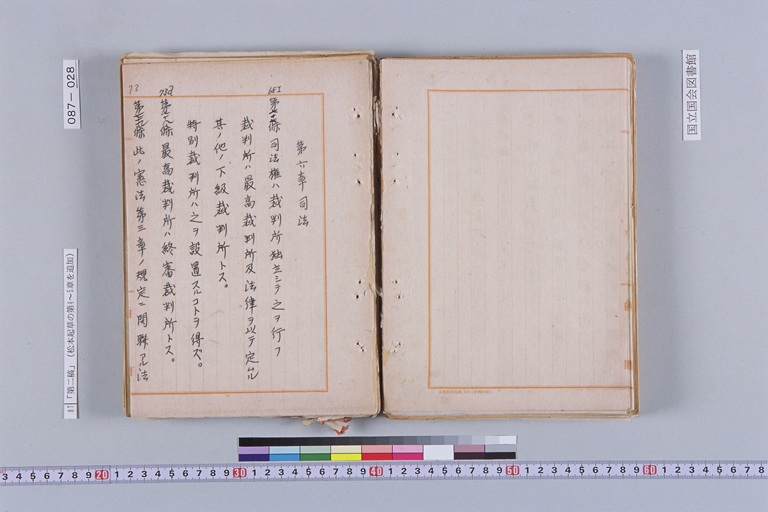 国立国会図書館
第六章 司法
司法権ハ裁判所独立シテ之ヲ行フ
裁判所ハ最高裁判所及法律ヲ以テ定ムル
其ノ他ノ下級裁判所トス。
特別裁判所ハ之ヲ設置スルコトヲ得ズ。
最高裁判所ハ終審裁判所トス。
此ノ憲法第三章ノ規定ニ関聯アル法
087－028
87 「第二稿」（松本起草の第4～5章を追加）
3 4 5 6 7 8 9 20 1 2 3 4 5 6 7 8 9 30 1 2 3 4 5 6 7 8 9 40 1 2 3 4 5 6 7 8 9 50 1 2 3 4 5 6 7 8 9 60 1 2 3 4 5 6 7 8